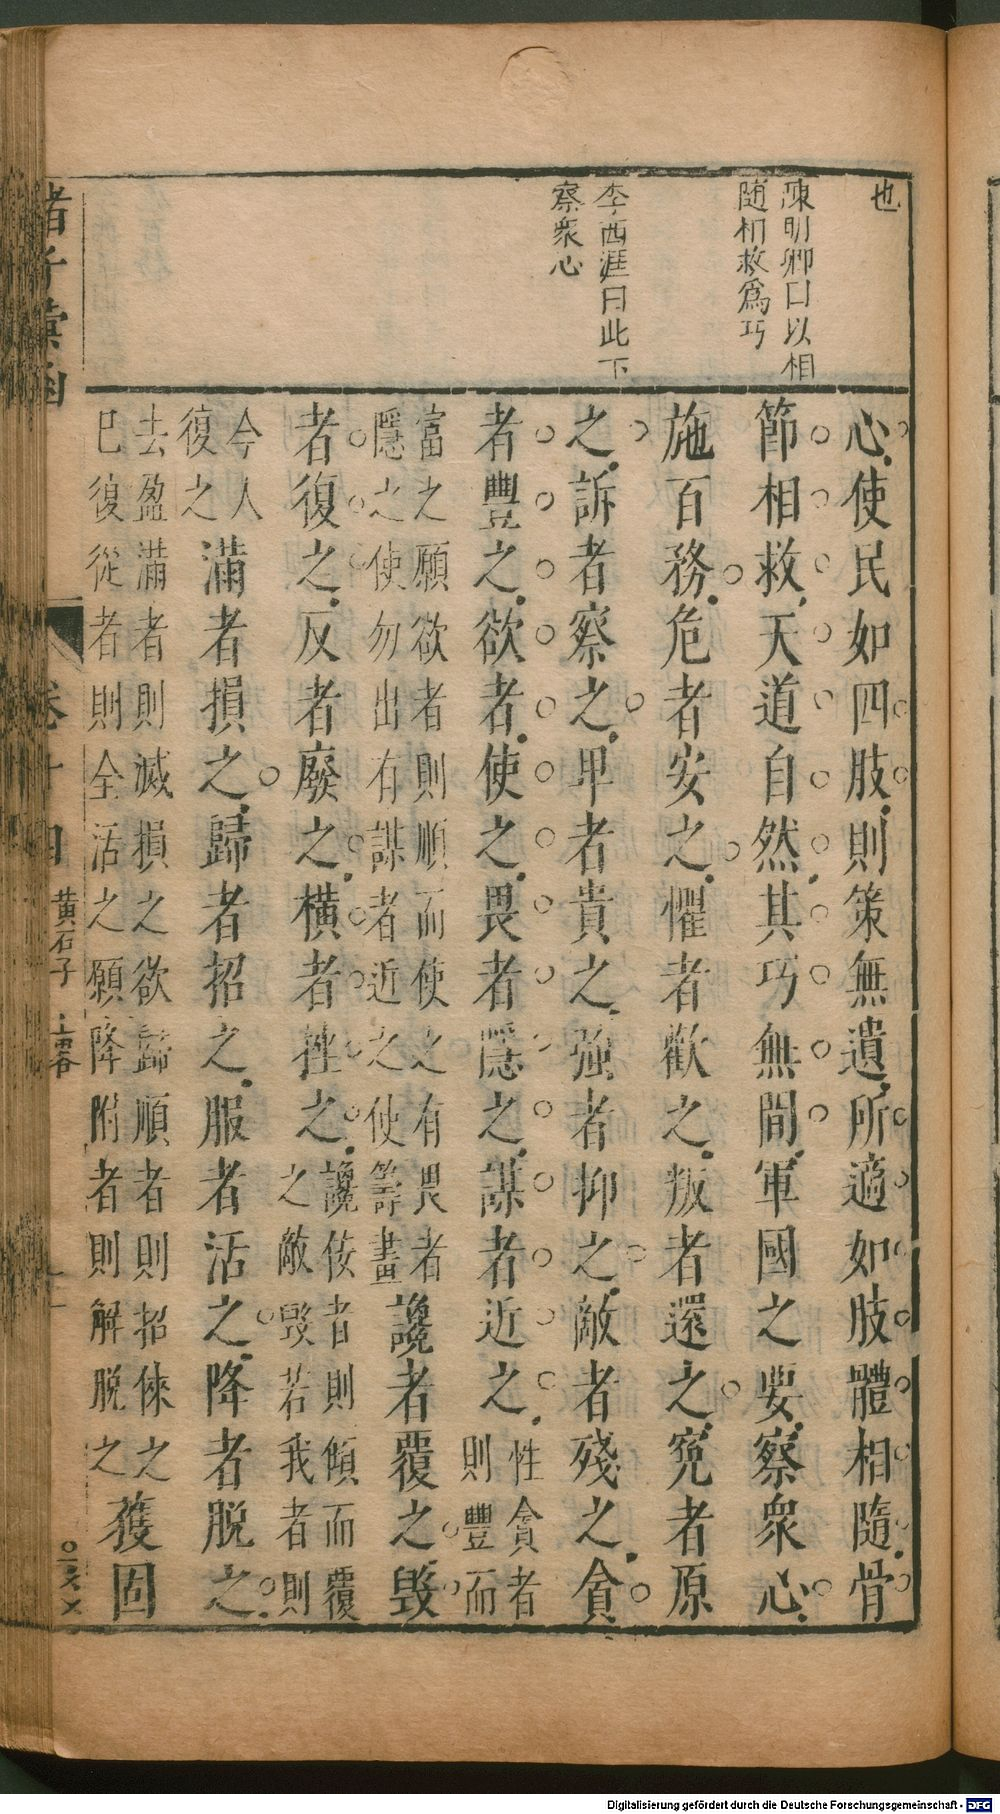 也
陳明卿曰以相
随相救爲巧
李西涯曰此下
察衆心
心使民如四肢則策無遺所適如肢體相隨骨
節相救天道自然其巧無間軍國之要察衆心
施百務危者安之懼者歡之叛者還之寃者原
之訴者察之卑者貴之強者抑之敵者殘之貪
者豐之欲者使之畏者隱之謀者近之
性貪者
則豐而
富之願欲者則順而使之有畏者
隱之使勿出有謀者近之使籌畫
讒者覆之毁
者復之反者廢之橫者挫之
讒佞者則傾而覆
之敵毁若我者則
今人
復之
滿者損之歸者招之服者活之降者脱之
去盈滿者則滅損之欲歸順者則招倈之
巳復從者則全活之願降附者則解脱之
獲固
諸子彚函
卷十四
黄石子
上畧
Digitalisierung gefördert durch die Deutsche Forschungsgemeinschaft - DFG